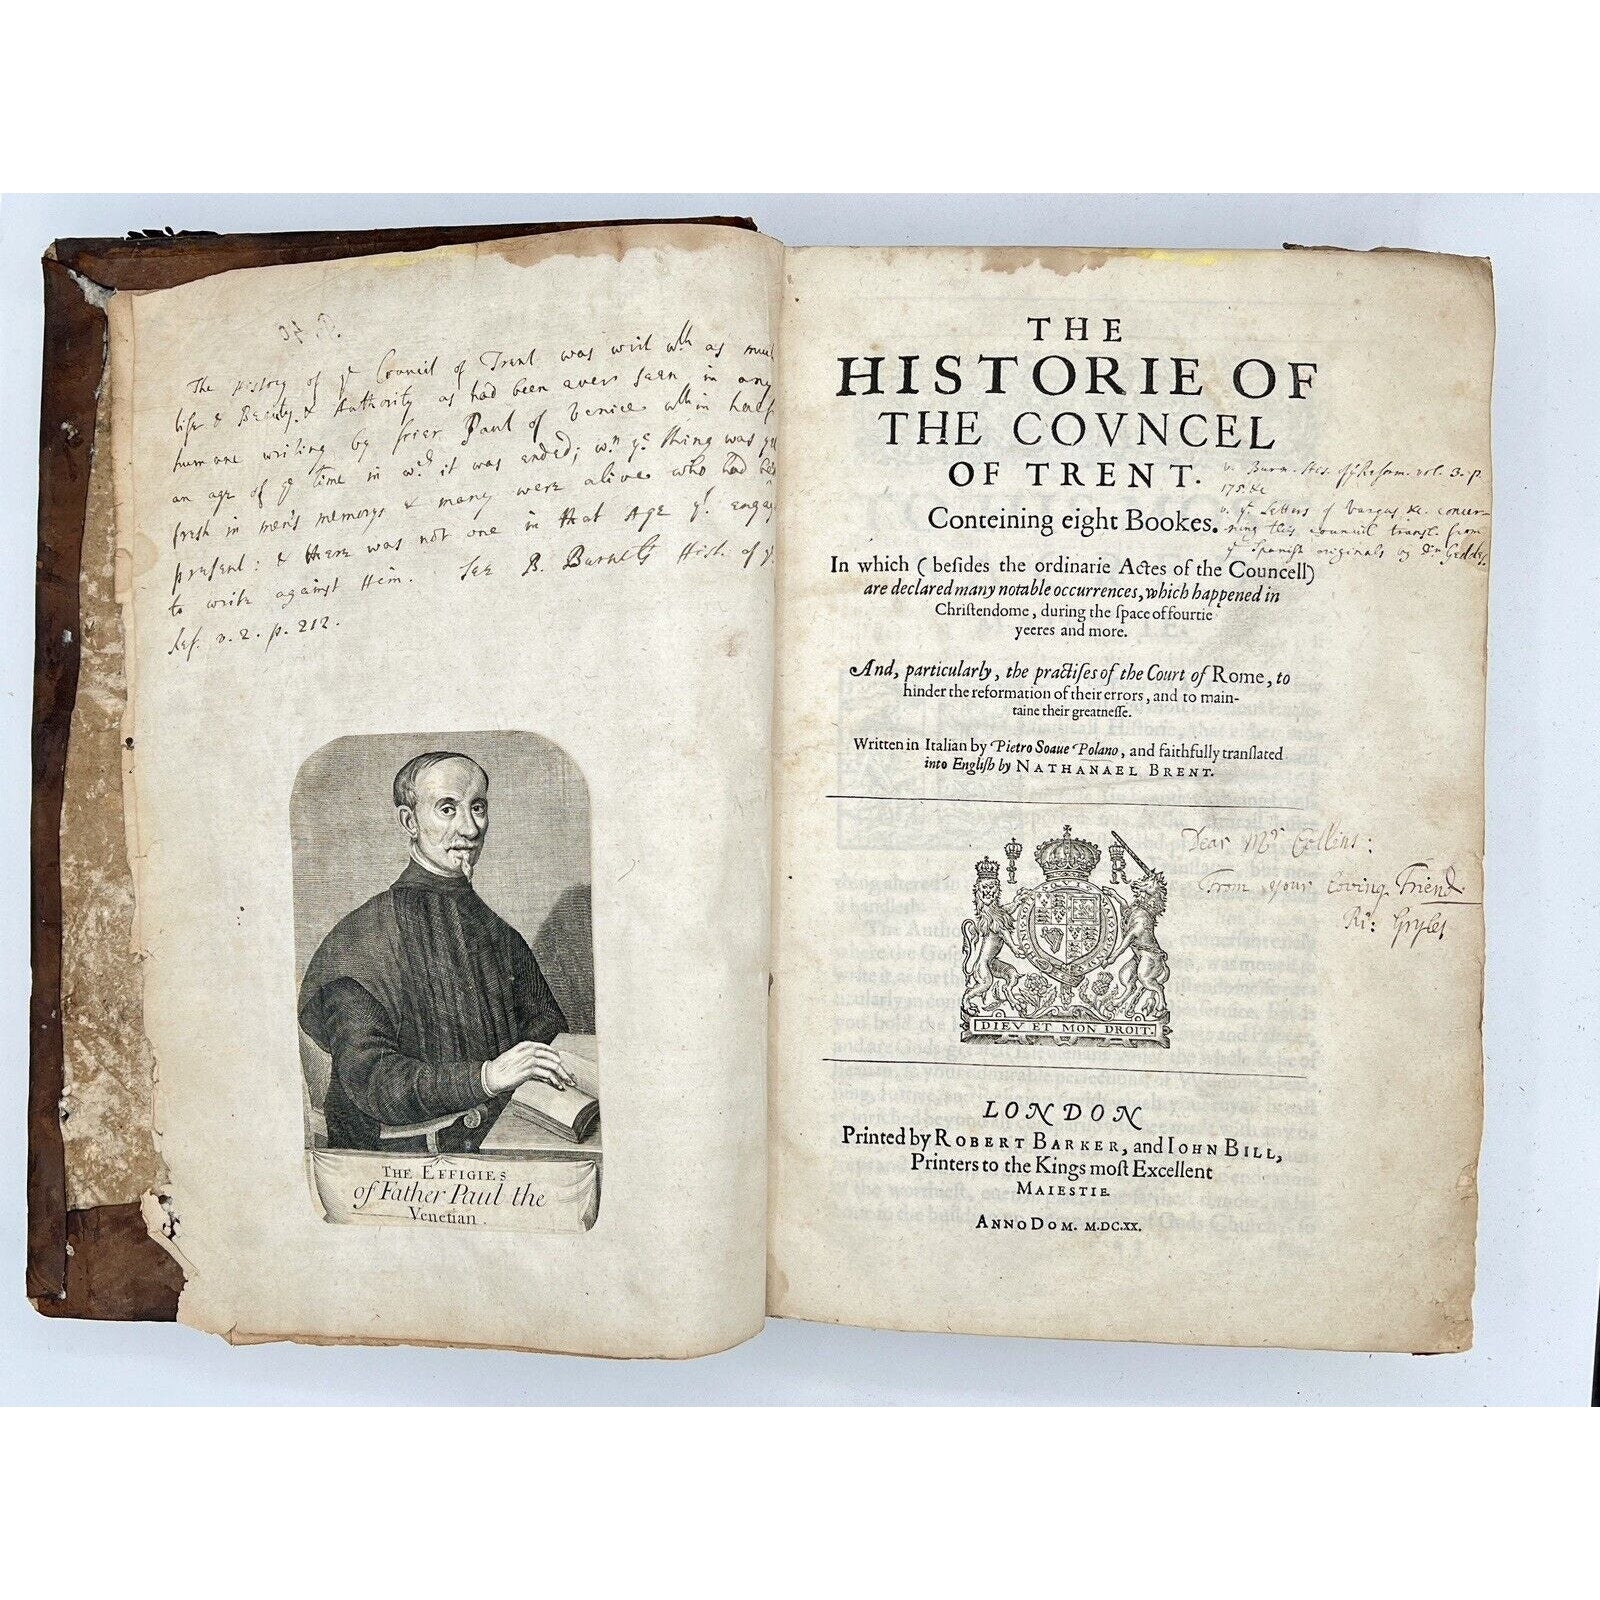 The History of yᵉ Council of Trent was writ wth as much
life & Beauty & Authority as had been ever seen in any
humane writing by frier Paul of Venice wthin half
an age of yᵉ time in wch it was ended; wn yᵉ thing was yet
fresh in men's memorys & many were alive who had been
present: & there was not one in that Age yt engag'd
to write against Him. See B. Burnet's Hist. of yᵉ
Ref. v. 2. p. 212.
THE EFFIGIES
of Father Paul the
Venetian.
THE
HISTORIE OF
THE COVNCEL
OF TRENT.
v. Burn. His. of yᵉ Reform. vol. 3. p.
175. &c
Conteining eight Bookes.
v. yᵉ Letters of Vargas &c. concer-
ning this council transl. from
yᵉ Spanish originals by Dr Geddes.
In which (beſides the ordinarie Actes of the Councell)
are declared many notable occurrences, which happened in
Chriſtendome, during the ſpace of fourtie
yeeres and more.
And, particularly, the practiſes of the Court of Rome, to
hinder the reformation of their errors, and to main-
taine their greatneſſe.
Written in Italian by Pietro Soaue Polano, and faithfully tranſlated
into Engliſh by NATHANAEL BRENT.
I R
DIEV ET MON DROIT.
Dear Mr Collins:
From your Loving Friend
Ri: Gryles
LONDON
Printed by ROBERT BARKER, and IOHN BILL,
Printers to the Kings moſt Excellent
MAIESTIE.
ANNO DOM. M.DC.XX.